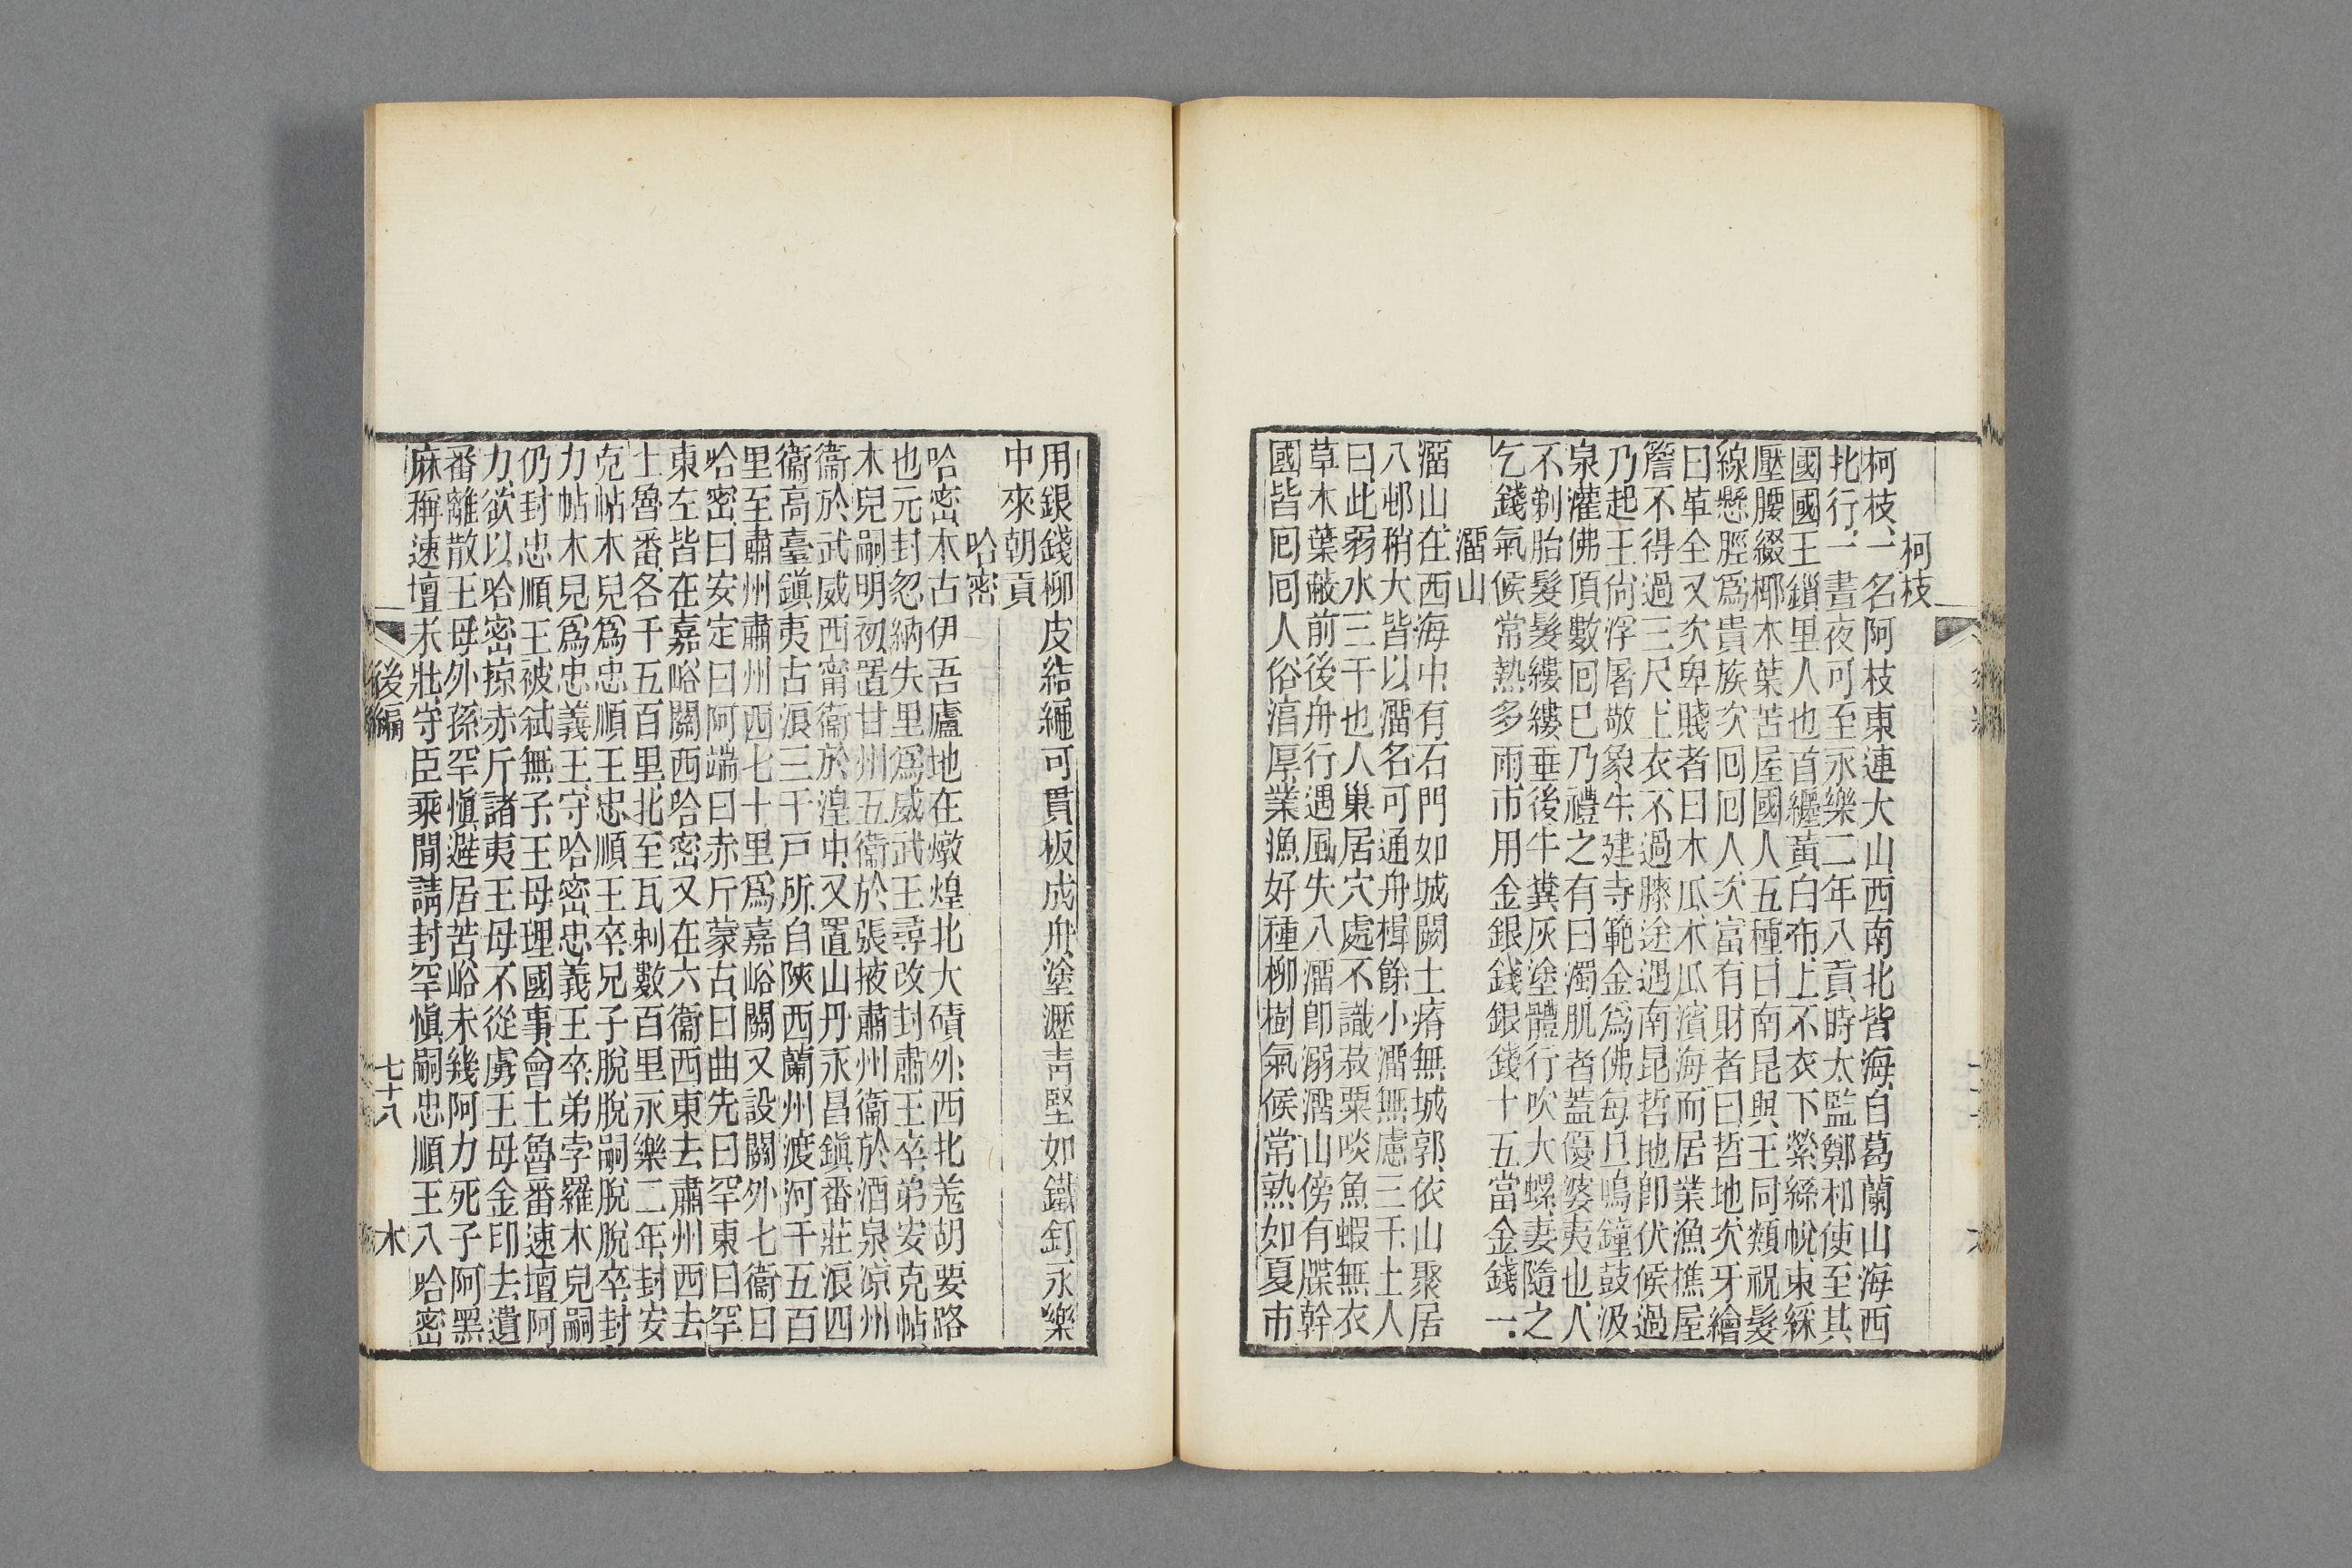 柯枝
柯枝一名阿枝東連大山西南北皆海自葛蘭山海西
北行一晝夜可至永樂二年入貢時太監鄭和使至其
國國王鎖里人也首纏黃白布上不衣下縈絲帨束綵
壓腰綴椰木葉苫屋國人五種曰南昆與王同類祝髮
線懸脛爲貴族次囘囘人次富有財者曰哲地次牙繪
曰革全又次卑賤者曰木瓜木瓜濱海而居業漁樵屋
簷不得過三尺上衣不過膝途遇南昆哲地卽伏候過
乃起王尙浮屠敬象牛建寺範金爲佛每旦鳴鐘鼓汲
泉灌佛頂數囘巳乃禮之有曰濁肌者蓋優婆夷也人
不剃胎髮髮縷縷垂後牛糞灰塗體行吹大螺妻隨之
乞錢氣候常熱多雨市用金銀錢銀錢十五當金錢一
溜山
溜山在西海中有石門如城闕土瘠無城郭依山聚居
八邨稍大皆以溜名可通舟楫餘小溜無慮三千土人
曰此弱水三千也人巢居穴處不識菽粟啖魚蝦無衣
草木葉蔽前後舟行遇風失入溜卽溺溜山傍有牒幹
國皆囘囘人俗淳厚業漁好種柳樹氣候常熱如夏市
用銀錢柳皮結繩可貫板成舟塗瀝靑堅如鐵釘永樂
中來朝貢
哈密
哈密本古伊吾廬地在燉煌北大磧外西北羌胡要路
也元封忽納失里爲威武王尋改封肅王卒弟安克帖
木兒嗣明初置甘州五衞於張掖肅州衞於酒泉涼州
衞於武威西甯衞於湟中又置山丹永昌鎮番莊浪四
衞高臺鎭夷古浪三千戸所自陝西蘭州渡河千五百
里至肅州肅州西七十里爲嘉峪關又設關外七衞曰
哈密曰安定曰阿端曰赤斤蒙古曰曲先曰罕東曰罕
東左皆在嘉峪關西哈密又在六衞西東去肅州西去
土魯番各千五百里北至瓦剌數百里永樂二年封安
克帖木兒爲忠順王忠順王卒兄子脫脫嗣脫脫卒封
力帖木兒爲忠義王守哈密忠義王卒弟孛羅木兒嗣
仍封忠順王被弒無子王母理國事會土魯番速壇阿
力欲以哈密掠赤斤諸夷王母不從虜王母金印去遺
番離散王母外孫罕愼避居苦峪未幾阿力死子阿黑
麻稱速壇未壯守臣乘閒請封罕愼嗣忠順王入哈密
後編
七十八
木